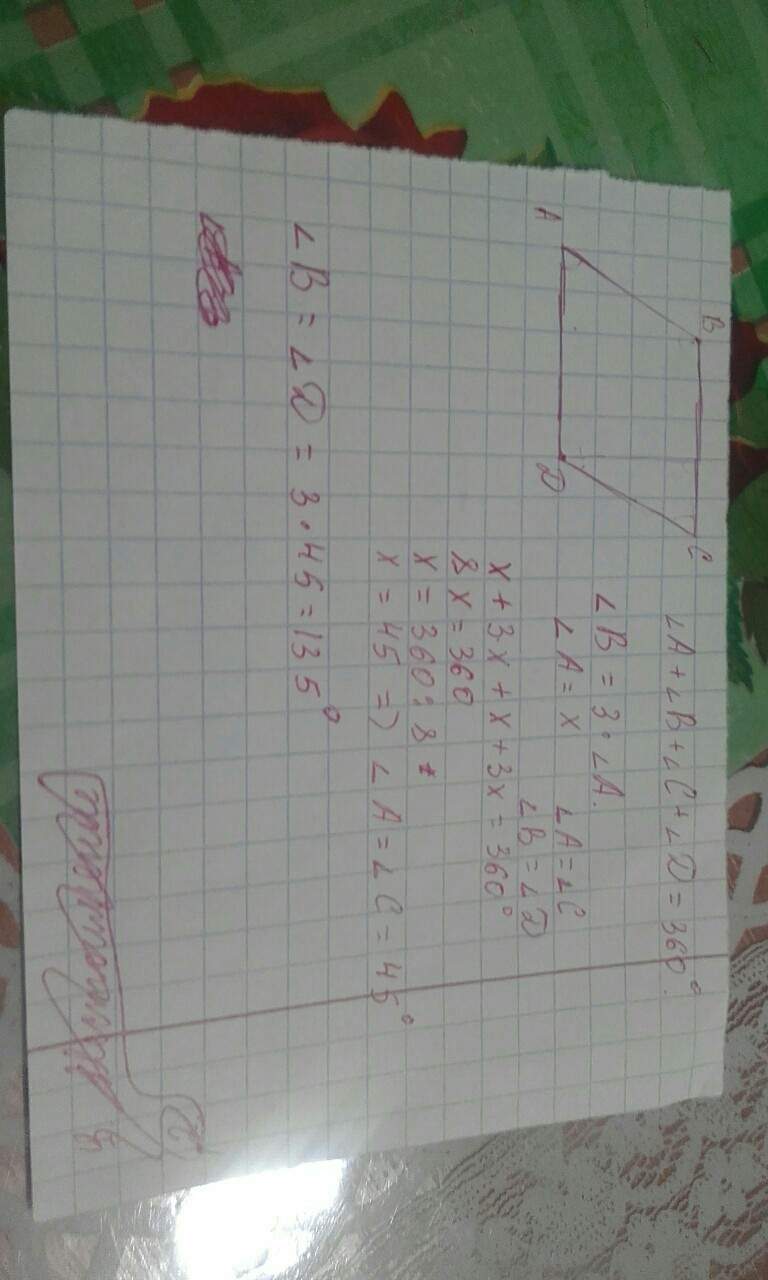 B
C
A
D
∠A+∠B+∠C+∠D=360°.
∠B = 3·∠A.
∠A = x ∠A=∠C
∠B=∠D
x+3x+x+3x=360°
8x=360
x=360:8
x=45 => ∠A=∠C=45°
∠B=∠D=3·45=135°